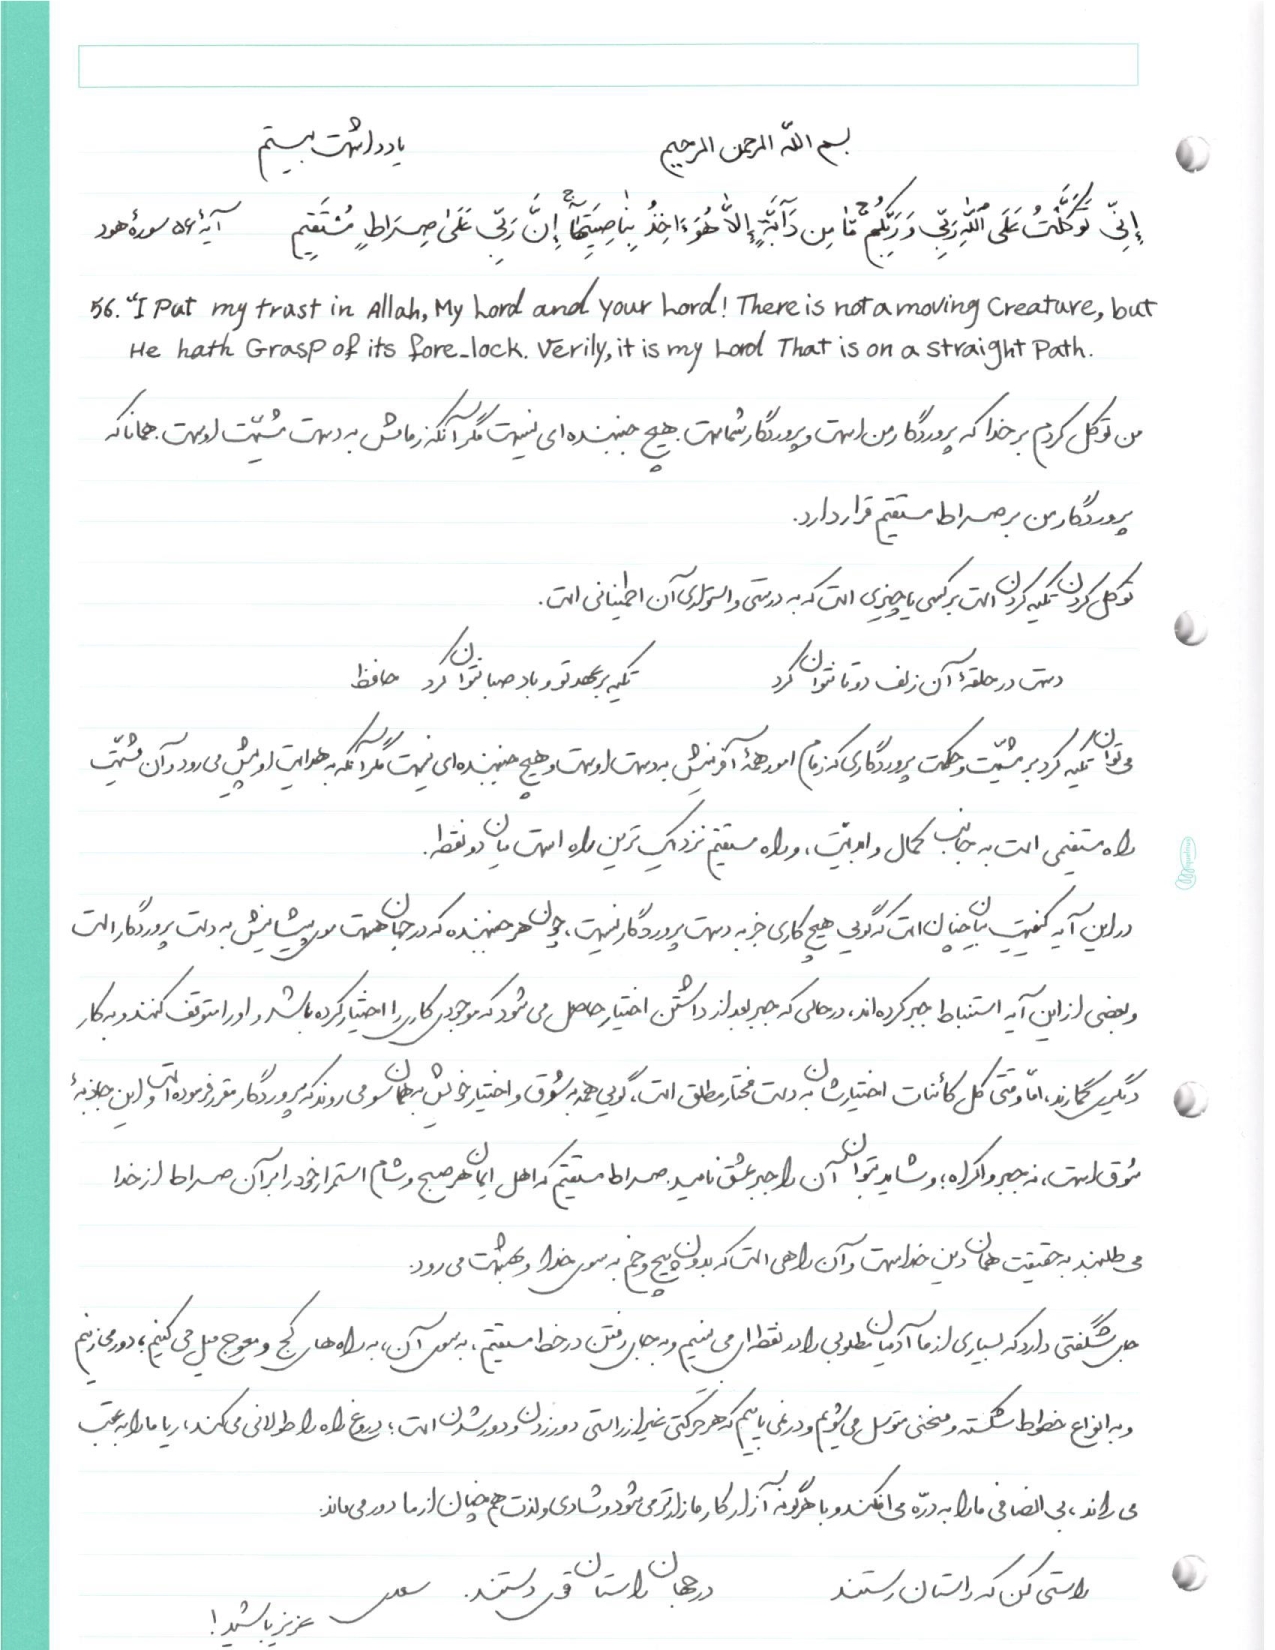 بسم الله الرحمن الرحیم یادداشت بیستم
إِنِّي تَوَكَّلْتُ عَلَى اللَّهِ رَبِّي وَرَبِّكُم مَّا مِن دَآبَّةٍ إِلاَّ هُوَ ءَاخِذٌ بِنَاصِيَتِهَآ إِنَّ رَبِّي عَلَىٰ صِرَاطٍ مُّسْتَقِيمٍ آیهٔ ۵۶ سورهٔ هود
56. "I Put my trust in Allah, My Lord and your Lord! There is not a moving Creature, but
He hath Grasp of its fore-lock. Verily, it is my Lord That is on a straight Path.
من توکل کردم بر خدا که پروردگار من است و پروردگار شماست. هیچ جنبنده ای نیست مگر آنکه زمامش به دست مشیّت اوست. همانا که
پروردگار من بر صراط مستقیم قرار دارد.
توکل کردن تکیه کردن است بر کسی یا چیزی است که به درستی و استواری آن اطمینانی است.
دست در حلقهٔ آن زلف دوتا نتوان کرد تکیه بر عهد تو و باد صبا نتوان کرد حافظ
می توان تکیه کرد بر مشیّت و حکمت پروردگاری که زمام امور همهٔ آفرینش به دست اوست و هیچ جنبنده ای نیست مگر آنکه به هدایت او پیش می رود و آن مشیّت
راه مستقیمی است به جانب کمال و ابدیّت، و راه مستقیم نزدیک ترین راه است میان دو نقطه.
در این آیه کیفیت بیان چنان است که گویی هیچ کاری جز به دست پروردگار نیست، چون هر جنبنده که در جهان هست موی پیشانیش به دست پروردگار است
و بعضی از این آیه استنباط جبر کرده اند، در حالی که جبر بعد از داشتن اختیار حاصل می شود که موجودی کاری را اختیار کرده باشد و او را متوقف کنند و به کار
دیگری گمارند، امّا وقتی کل کائنات اختیارشان به دست مختار مطلق است، گویی همه به شوق و اختیار خویش به همان سو می روند که پروردگار مقرر فرموده است و این جاذبهٔ
شوق است، نه جبر و اکراه؛ و شاید بتوان آن را جبر عشق نامید. صراط مستقیم که اهل ایمان هر صبح و شام استمرار خود را بر آن صراط از خدا
می طلبند به حقیقت همان دین خداست و آن راهی است که بدون پیچ و خم به سوی خدا و بهشت می رود.
جای شگفتی دارد که بسیاری از ما آدمیان مطلوبی را در نقطه ای می بینیم و به جای رفتن در خط مستقیم، به سوی آن، به راه های کج و معوج میل می کنیم؛ دور می زنیم
و به انواع خطوط شکسته و منحنی متوسل می شویم و در نمی یابیم که هر حرکتی غیر از راستی دور زدن و دور شدن است؛ دروغ راه را طولانی می کند، ریا ما را به عقب
می راند، بی انصافی ما را به درّه می افکند و با هرگونه آزار کار ما زارتر می شود و شادی و لذت همچنان از ما دور می ماند.
راستی کن که راستان رستند در جهان راستان قوی دستند. سعدی
عزیز باشید!